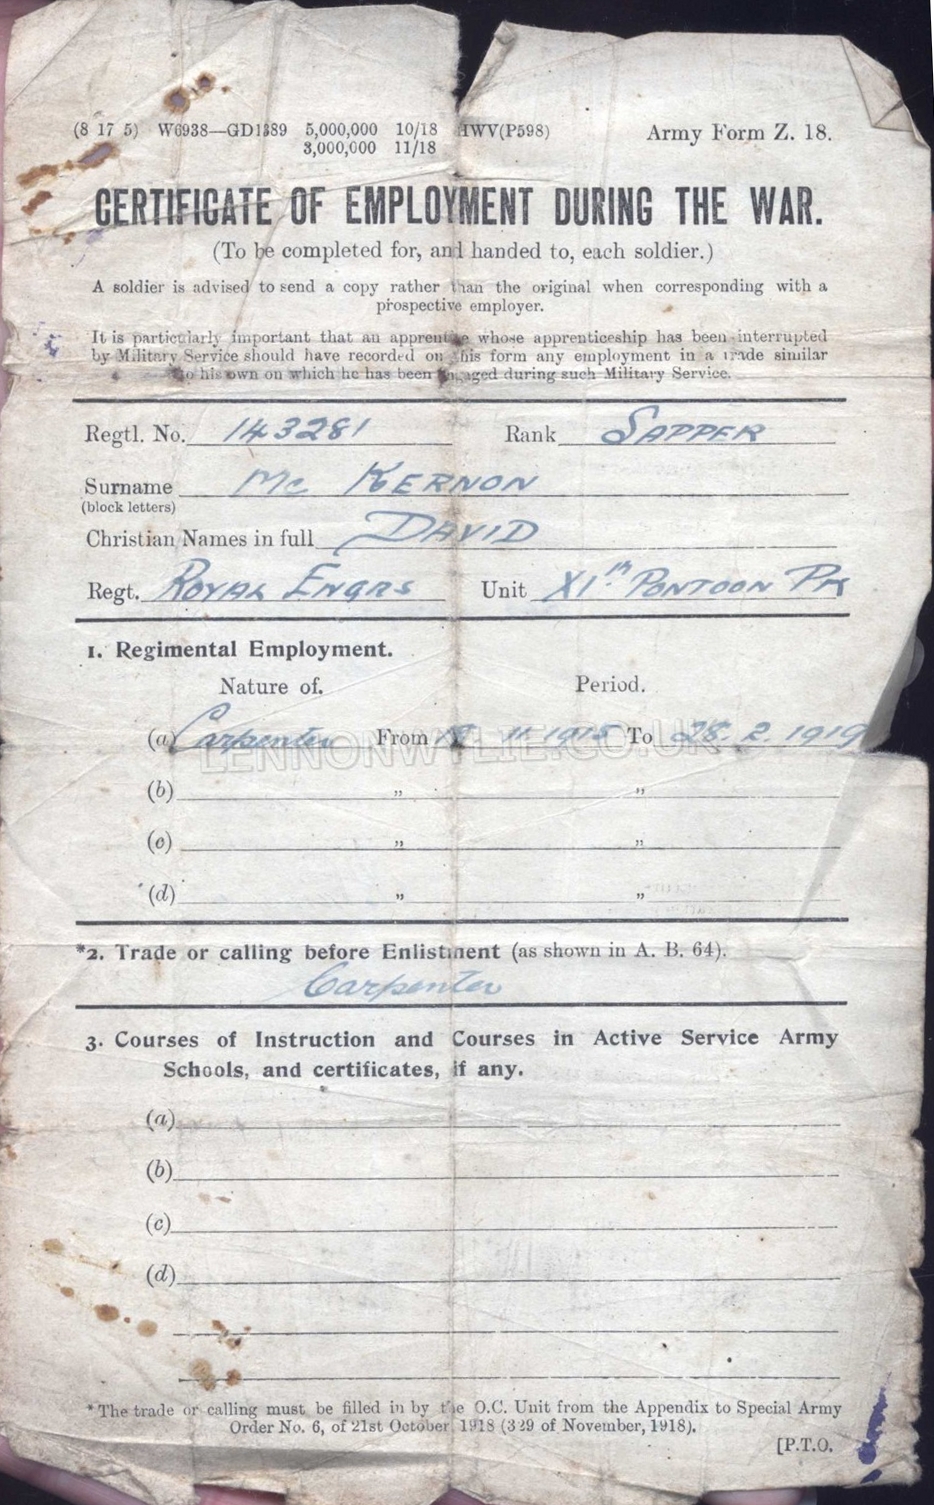 (8 17 5) W6938—GD1389 5,000,000 10/18 HWV(P598) Army Form Z. 18.
3,000,000 11/18
CERTIFICATE OF EMPLOYMENT DURING THE WAR.
(To be completed for, and handed to, each soldier.)
A soldier is advised to send a copy rather than the original when corresponding with a
prospective employer.
It is particularly important that an apprentice whose apprenticeship has been interrupted
by Military Service should have recorded on this form any employment in a trade similar
to his own on which he has been engaged during such Military Service.
Regtl. No. 143281 Rank SAPPER
Surname Mc KERNON
(block letters)
Christian Names in full DAVID
Regt. ROYAL ENGRS Unit XIth PONTOON PK
1. Regimental Employment.
Nature of. Period.
(a) Carpenter From 11 1915 To 28. 2. 1919
LENNONWYLIE.CO.UK
(b) „ „
(c) „ „
(d) „ „
*2. Trade or calling before Enlistment (as shown in A. B. 64).
Carpenter
3. Courses of Instruction and Courses in Active Service Army
Schools, and certificates, if any.
(a)
(b)
(c)
(d)
*The trade or calling must be filled in by the O.C. Unit from the Appendix to Special Army
Order No. 6, of 21st October, 1918 (329 of November, 1918).
[P.T.O.